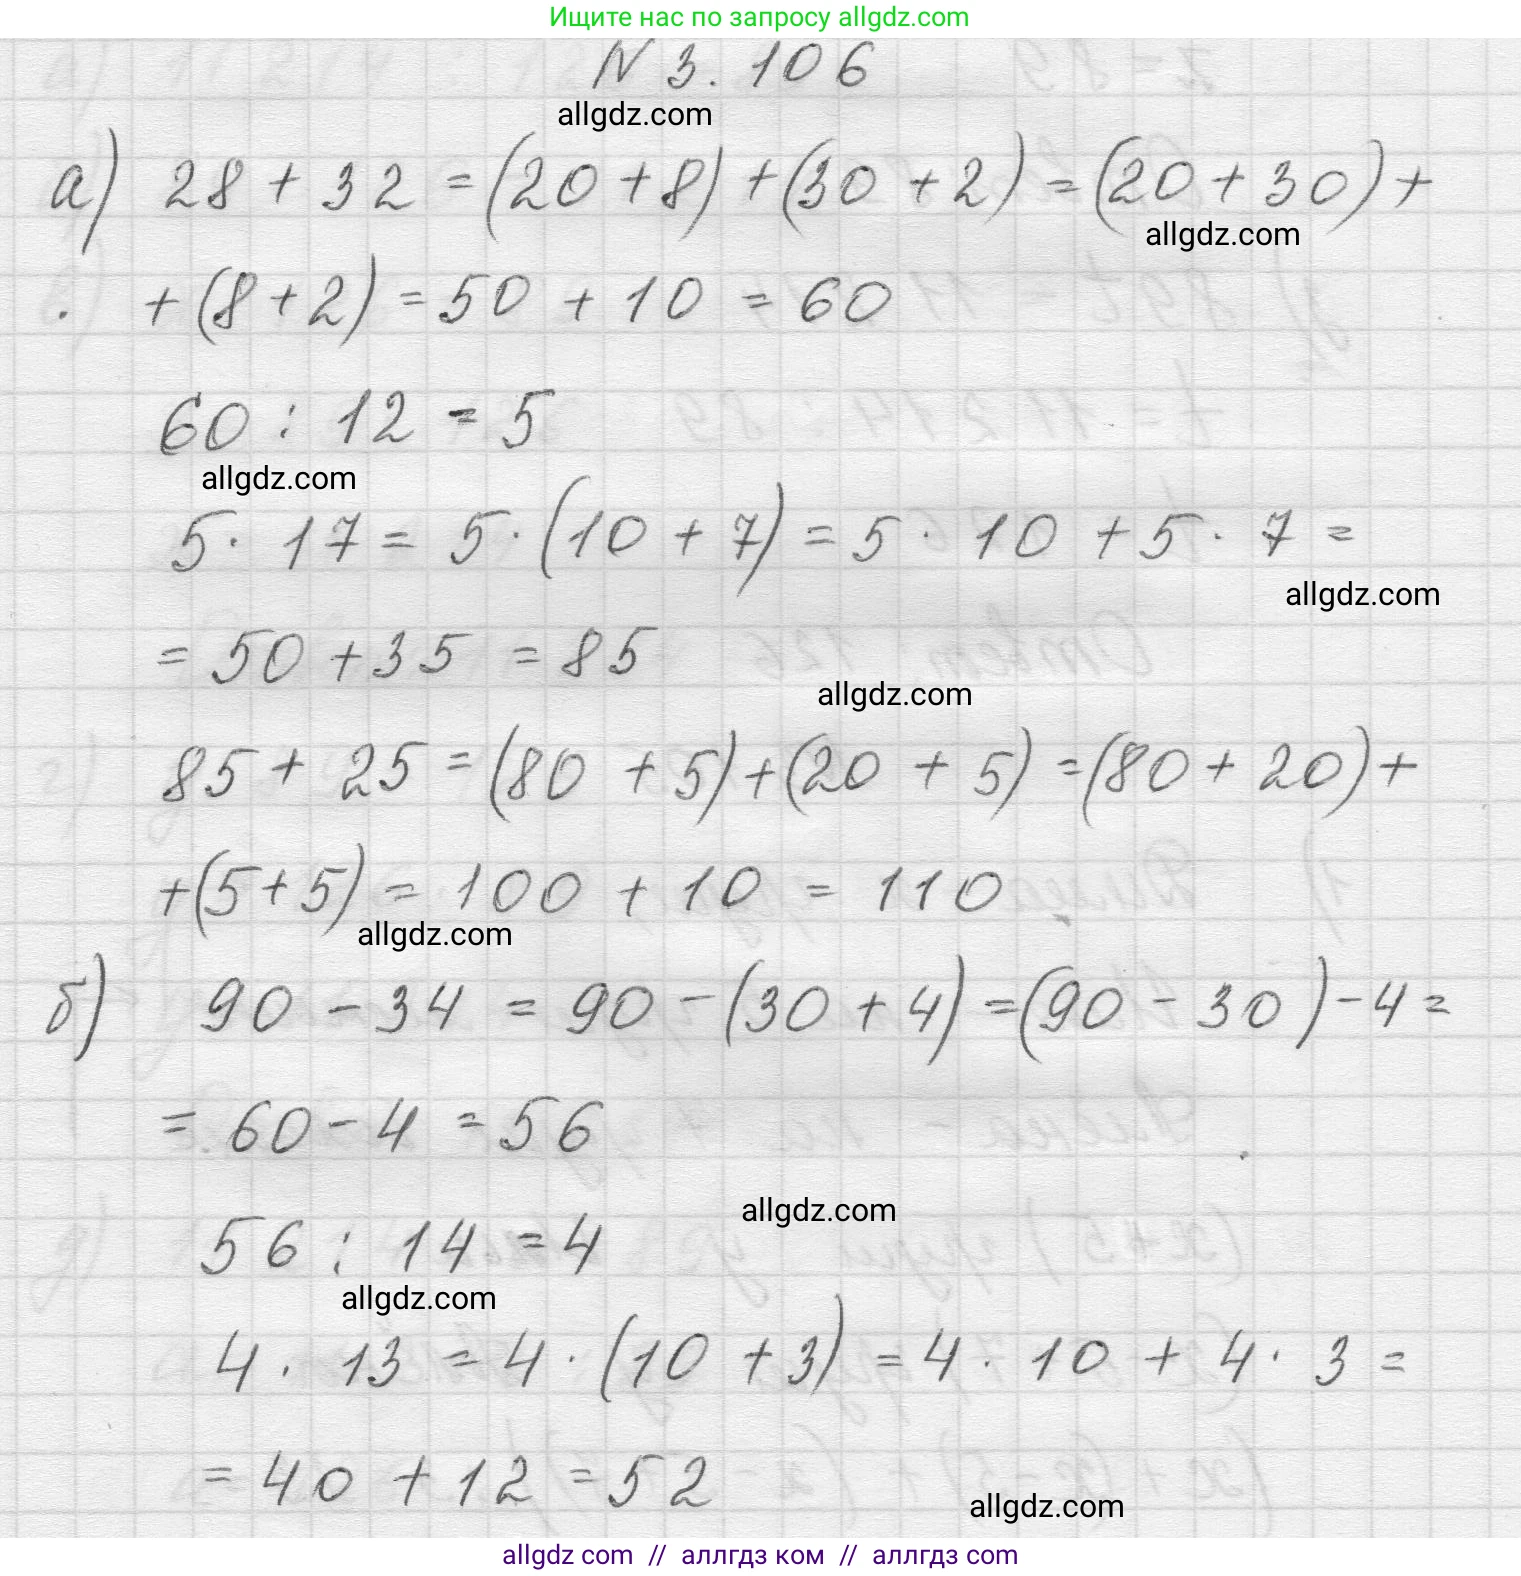 Ищите нас по запросу allgdz.com
N 3.106
allgdz.com
а) 28 + 32 = (20 + 8) + (30 + 2) = (20 + 30) +
allgdz.com
+ (8 + 2) = 50 + 10 = 60
60 : 12 = 5
allgdz.com
5 · 17 = 5 · (10 + 7) = 5 · 10 + 5 · 7 =
allgdz.com
= 50 + 35 = 85
allgdz.com
85 + 25 = (80 + 5) + (20 + 5) = (80 + 20) +
+ (5 + 5) = 100 + 10 = 110
allgdz.com
б) 90 - 34 = 90 - (30 + 4) = (90 - 30) - 4 =
= 60 - 4 = 56
allgdz.com
56 : 14 = 4
allgdz.com
4 · 13 = 4 · (10 + 3) = 4 · 10 + 4 · 3 =
= 40 + 12 = 52
allgdz.com
allgdz com // аллгдз ком // аллгдз com